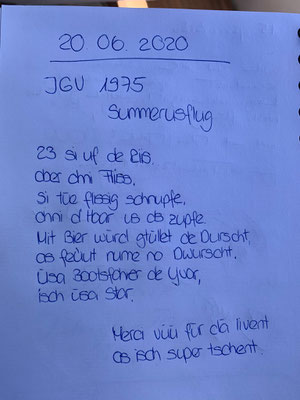 20 06. 2020
JGV 1975
Summerusflug
23 si uf de Reis.
aber ohni Fliiss,
Si tüe flissig schnupfe,
ohni d Haar us ds zupfe.
Mit Bier würd gfüllet de Durscht,
as fehlt nume no Dwurscht.
Üsa Bootsfahrer de Yvar,
isch üsa Star.
Merci viiu für dä Event
as isch super tschent.